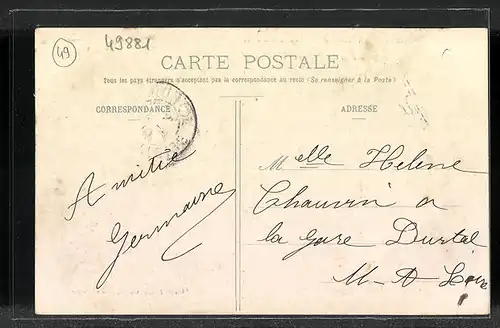 49
49881
CARTE POSTALE
Tous les pays étrangers n'acceptent pas la correspondance au recto (Se renseigner à la Poste)
CORRESPONDANCE
ADRESSE
Amitié
Germaine
Melle Helene
Chauvin a
la gare Durtal
M-et-Loire